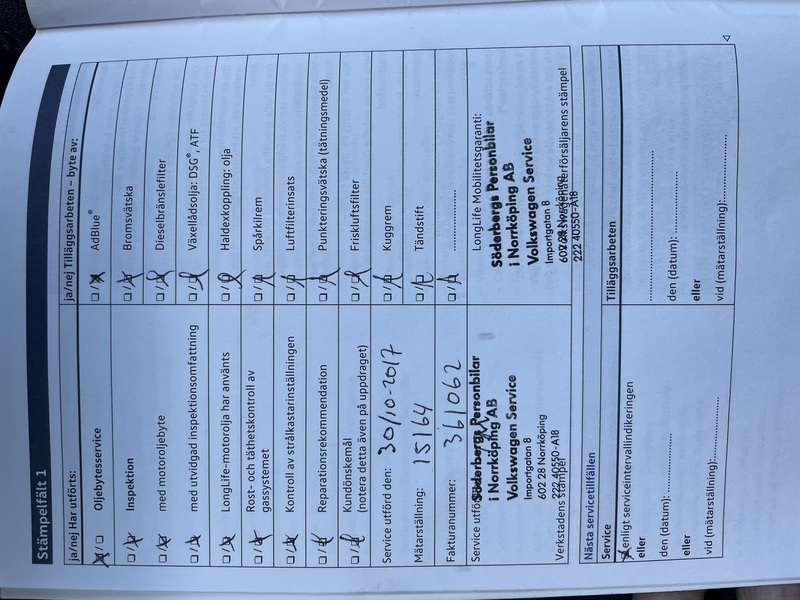 Stämpelfält 1
ja/nej Har utförts:
☒/☐ Oljebytesservice
☐/☒ Inspektion
☐/☒ med motoroljebyte
☐/☒ med utvidgad inspektionsomfattning
☐/☒ LongLife-motorolja har använts
☐/☒ Rost- och täthetskontroll av
gassystemet
☐/☒ Kontroll av strålkastarinställningen
☐/☒ Reparationsrekommendation
☐/☒ Kundönskemål
(notera detta även på uppdraget)
Service utförd den: 30/10-2017
Mätarställning: 15164
Fakturanummer: 361062
Service utför
Söderbergs Personbilar
i Norrköping AB
Volkswagen Service
Importgatan 8
602 28 Norrköping
222 40550-A18
Verkstadens stämpel
ja/nej Tilläggsarbeten – byte av:
☐/☒ AdBlue®
☐/☒ Bromsvätska
☐/☒ Dieselbränslefilter
☐/☒ Växellådsolja: DSG®, ATF
☐/☒ Haldexkoppling: olja
☐/☒ Spårkilrem
☐/☒ Luftfilterinsats
☐/☒ Punkteringsvätska (tätningsmedel)
☐/☒ Friskluftsfilter
☐/☒ Kuggrem
☐/☒ Tändstift
☐/☒ ....................
LongLife Mobilitetsgaranti:
Söderbergs Personbilar
i Norrköping AB
Volkswagen Service
Importgatan 8
602 28 Norrköping
Volkswagenåterförsäljarens stämpel
222 40550-A18
Nästa servicetillfällen
Service
☒ enligt serviceintervallindikeringen
eller
den (datum):....................
eller
vid (mätarställning):....................
Tilläggsarbeten
....................
den (datum):....................
eller
vid (mätarställning):....................